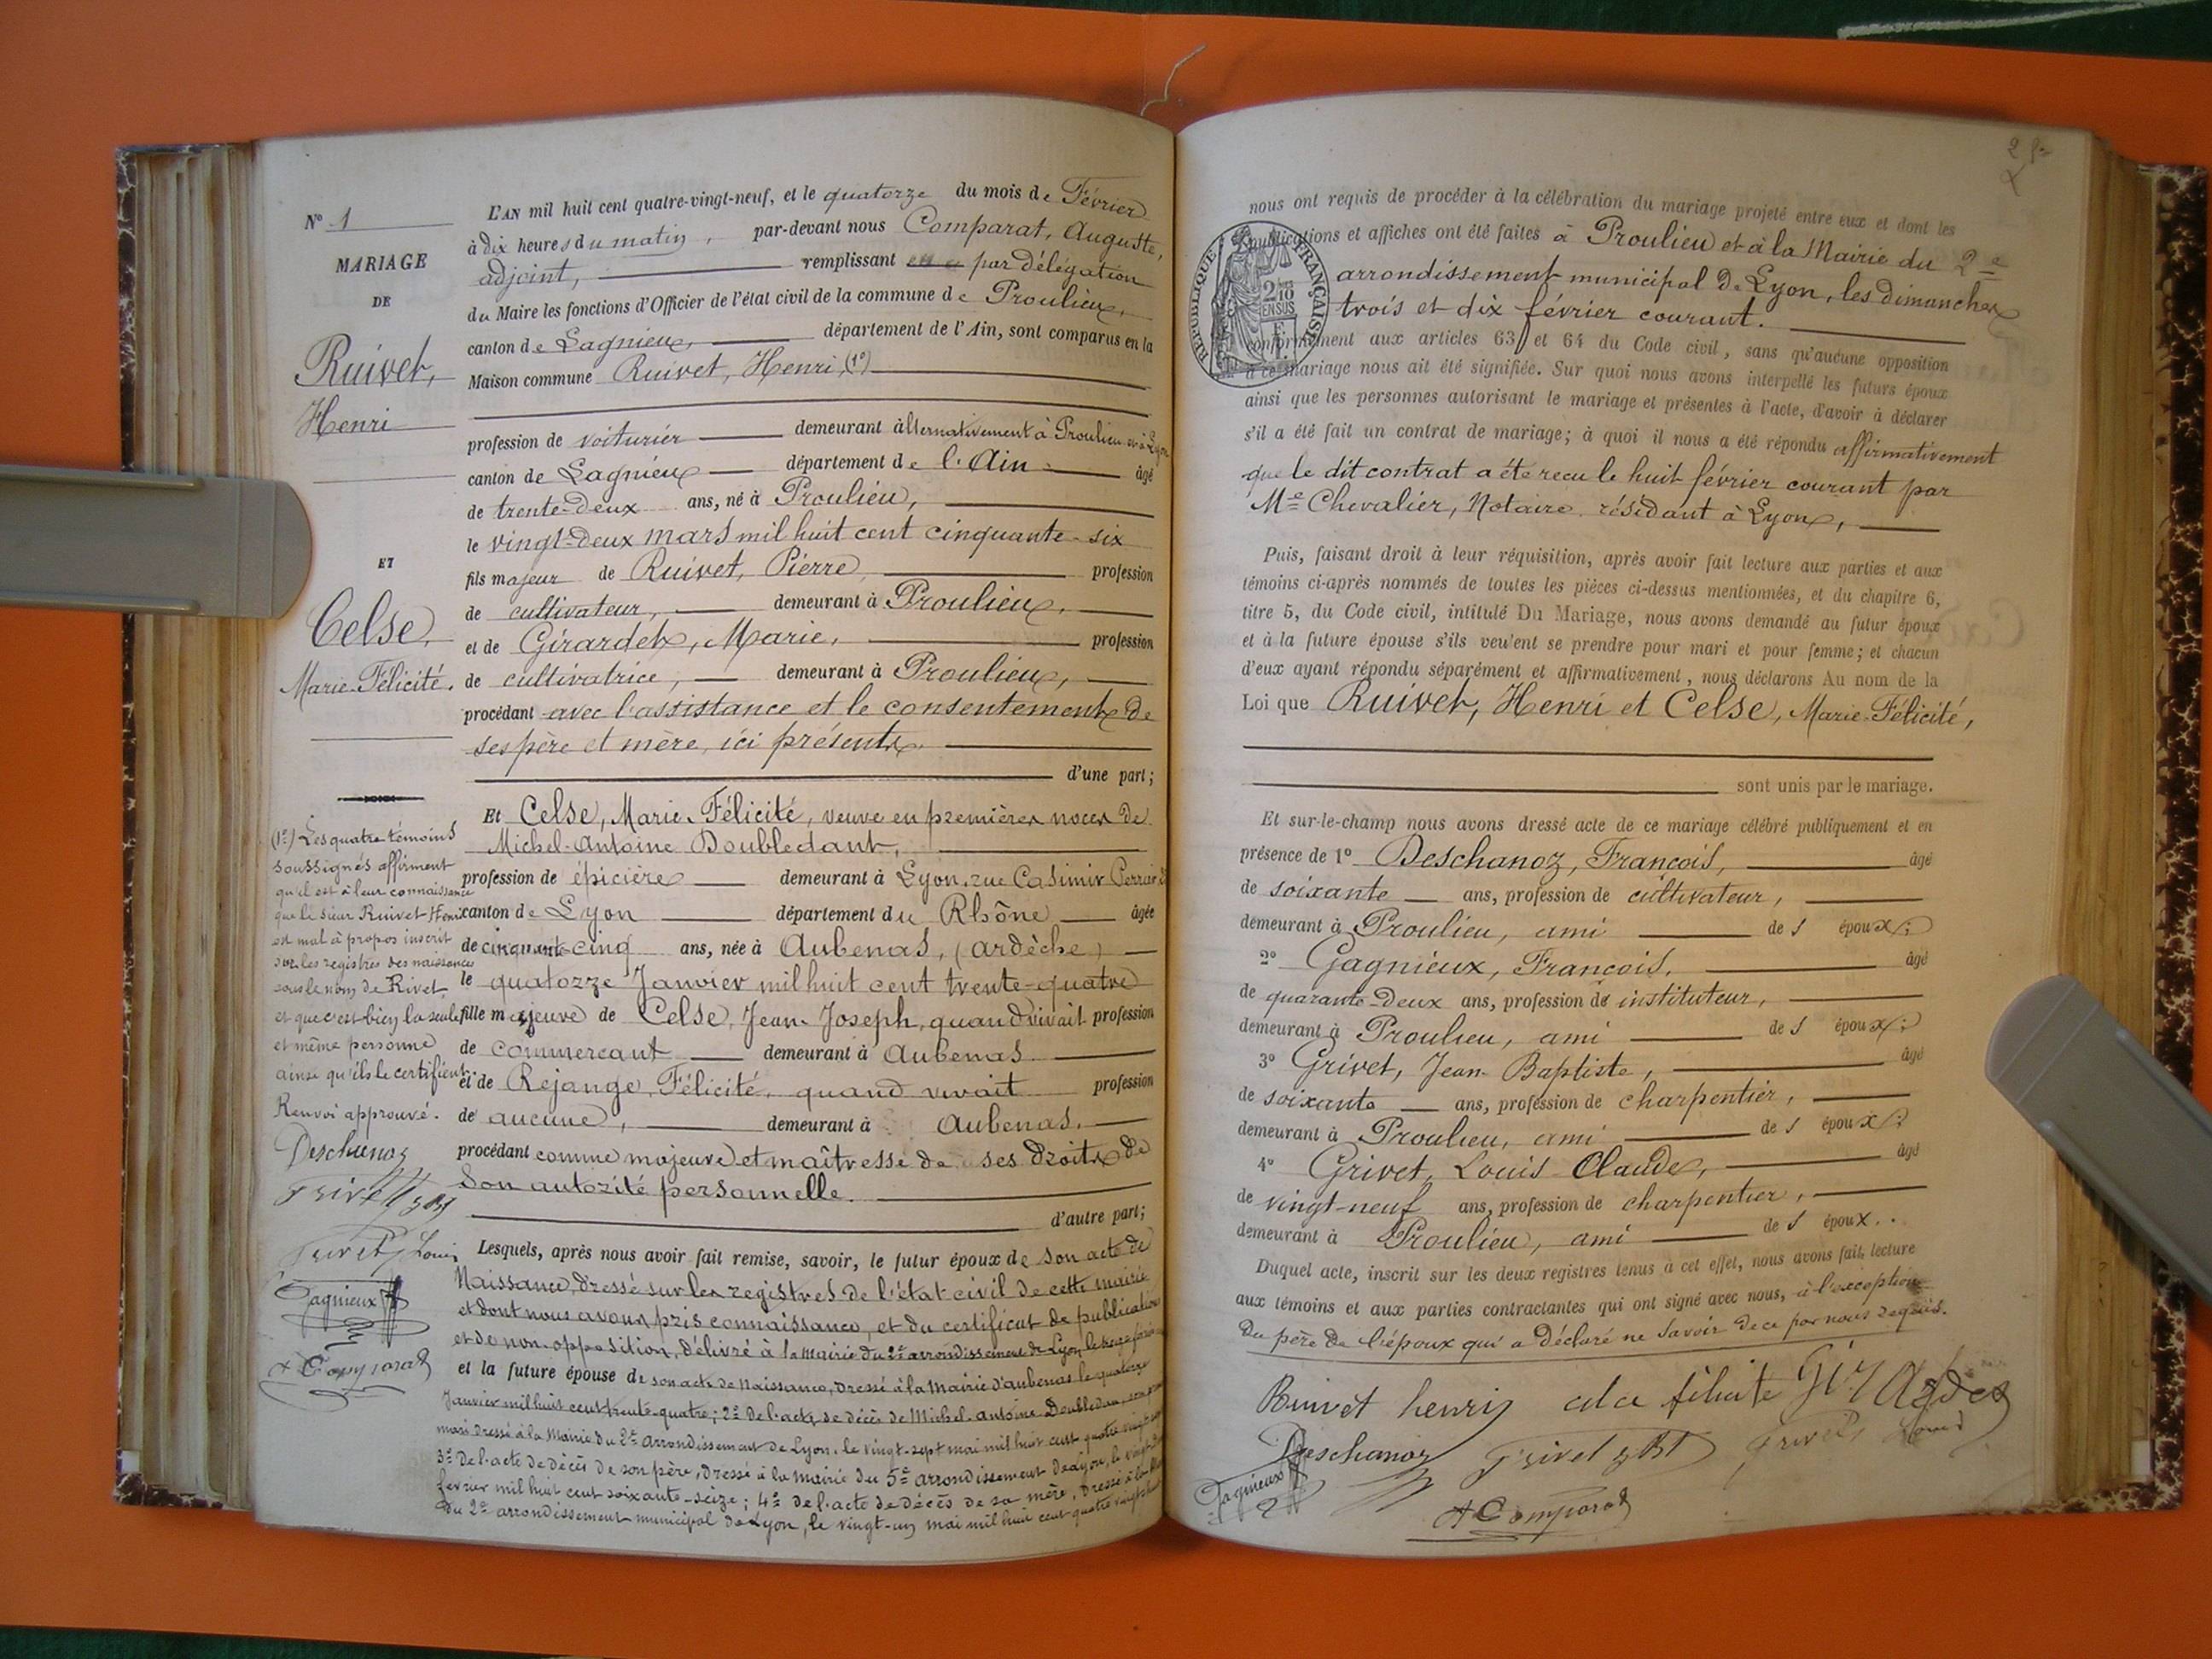 N° 1
MARIAGE
DE
Ruivet,
Henri
ET
Celse,
Marie-Félicité.
(1°) Les quatre témoins
soussignés affirment
qu'il est à leur connaissance
que le sieur Ruivet Henri
est mal à propos inscrit
sur les registres des naissances
sous le nom de Rivet,
et que c'est bien la seule
et même personne
ainsi qu'ils le certifient.
Renvoi approuvé.
Deschanoz
Grivet J Bt
Grivet Louis
Gagnieux
A Comparat
L'AN mil huit cent quatre-vingt-neuf, et le quatorze du mois de Février
à dix heures du matin, par-devant nous Comparat, Auguste,
adjoint, remplissant par délégation
du Maire les fonctions d'Officier de l'état civil de la commune de Proulieu,
canton de Lagnieu, département de l'Ain, sont comparus en la
Maison commune Ruivet, Henri, (1°)
profession de voiturier demeurant alternativement à Proulieu et à Lyon
canton de Lagnieu département de l'Ain âgé
de trente-deux ans, né à Proulieu,
le vingt-deux mars mil huit cent cinquante-six
fils majeur de Ruivet, Pierre, profession
de cultivateur, demeurant à Proulieu,
et de Girardet, Marie, profession
de cultivatrice, demeurant à Proulieu,
procédant avec l'assistance et le consentement de
ses père et mère, ici présents.
d'une part;
Et Celse, Marie-Félicité, veuve en premières noces de
Michel-Antoine Doubledant,
profession de épicière demeurant à Lyon, rue Casimir Perrier
canton de Lyon département du Rhône âgée
de cinquante-cinq ans, née à Aubenas, (ardèche)
le quatorze Janvier mil huit cent trente-quatre
fille majeure de Celse, Jean-Joseph, quand vivait profession
de commercant demeurant à Aubenas
et de Rejange, Félicité, quand vivait profession
de aucune, demeurant à Aubenas.
procédant comme majeure et maîtresse de ses droits de
son autorité personnelle.
d'autre part;
Lesquels, après nous avoir fait remise, savoir, le futur époux de son acte de
Naissance, dressé sur les registres de l'état civil de cette mairie
et dont nous avons pris connaissance, et du certificat de publication
et de non-opposition, délivré à la Mairie du 2e arrondissement de Lyon
et la future épouse de son acte de Naissance, dressé à la Mairie d'aubenas le quatorze
Janvier mil huit cent trente-quatre; 2° de l'acte de décès de Michel-antoine
mari dressé à la Mairie du 2e arrondissement de Lyon, le vingt-sept mai mil huit cent quatre vingt
3° de l'acte de décès de son père, dressé à la mairie du 5e arrondissement de Lyon, le
février mil huit cent soixante-seize; 4° de l'acte de décès de sa mère, dressé à la
du 2e arrondissement municipal de Lyon, le vingt-un mai mil huit cent quatre vingt
nous ont requis de procéder à la célébration du mariage projeté entre eux et dont les
publications et affiches ont été faites à Proulieu et à la Mairie du 2e
arrondissement municipal de Lyon, les dimanches
trois et dix février courant.
RÉPUBLIQUE FRANÇAISE
conformément aux articles 63 et 64 du Code civil, sans qu'aucune opposition
à ce mariage nous ait été signifiée. Sur quoi nous avons interpellé les futurs époux
ainsi que les personnes autorisant le mariage et présentes à l'acte, d'avoir à déclarer
s'il a été fait un contrat de mariage; à quoi il nous a été répondu affirmativement
que le dit contrat a été recu le huit février courant par
Me Chevalier, Notaire résidant à Lyon,
Puis, faisant droit à leur réquisition, après avoir fait lecture aux parties et aux
témoins ci-après nommés de toutes les pièces ci-dessus mentionnées, et du chapitre 6,
titre 5, du Code civil, intitulé Du Mariage, nous avons demandé au futur époux
et à la future épouse s'ils veulent se prendre pour mari et pour femme; et chacun
d'eux ayant répondu séparément et affirmativement, nous déclarons Au nom de la
Loi que Ruivet, Henri et Celse, Marie-Félicité,
sont unis par le mariage.
Et sur-le-champ nous avons dressé acte de ce mariage célébré publiquement et en
présence de 1° Deschanoz, Francois, âgé
de soixante ans, profession de cultivateur,
demeurant à Proulieu, ami des époux;
2° Gagnieux, Francois, âgé
de quarante-deux ans, profession de instituteur,
demeurant à Proulieu, ami des époux;
3° Grivet, Jean-Baptiste, âgé
de soixante ans, profession de charpentier,
demeurant à Proulieu, ami des époux;
4° Grivet, Louis Claude, âgé
de vingt-neuf ans, profession de charpentier,
demeurant à Proulieu, ami des époux.
Duquel acte, inscrit sur les deux registres tenus à cet effet, nous avons fait lecture
aux témoins et aux parties contractantes qui ont signé avec nous, à l'exception
du père de l'époux qui a déclaré ne savoir de ce par nous requis.
Ruivet henri félicité Girardet
Deschanoz Grivet J Bt Grivet Louis
Gagnieux
A Comparat